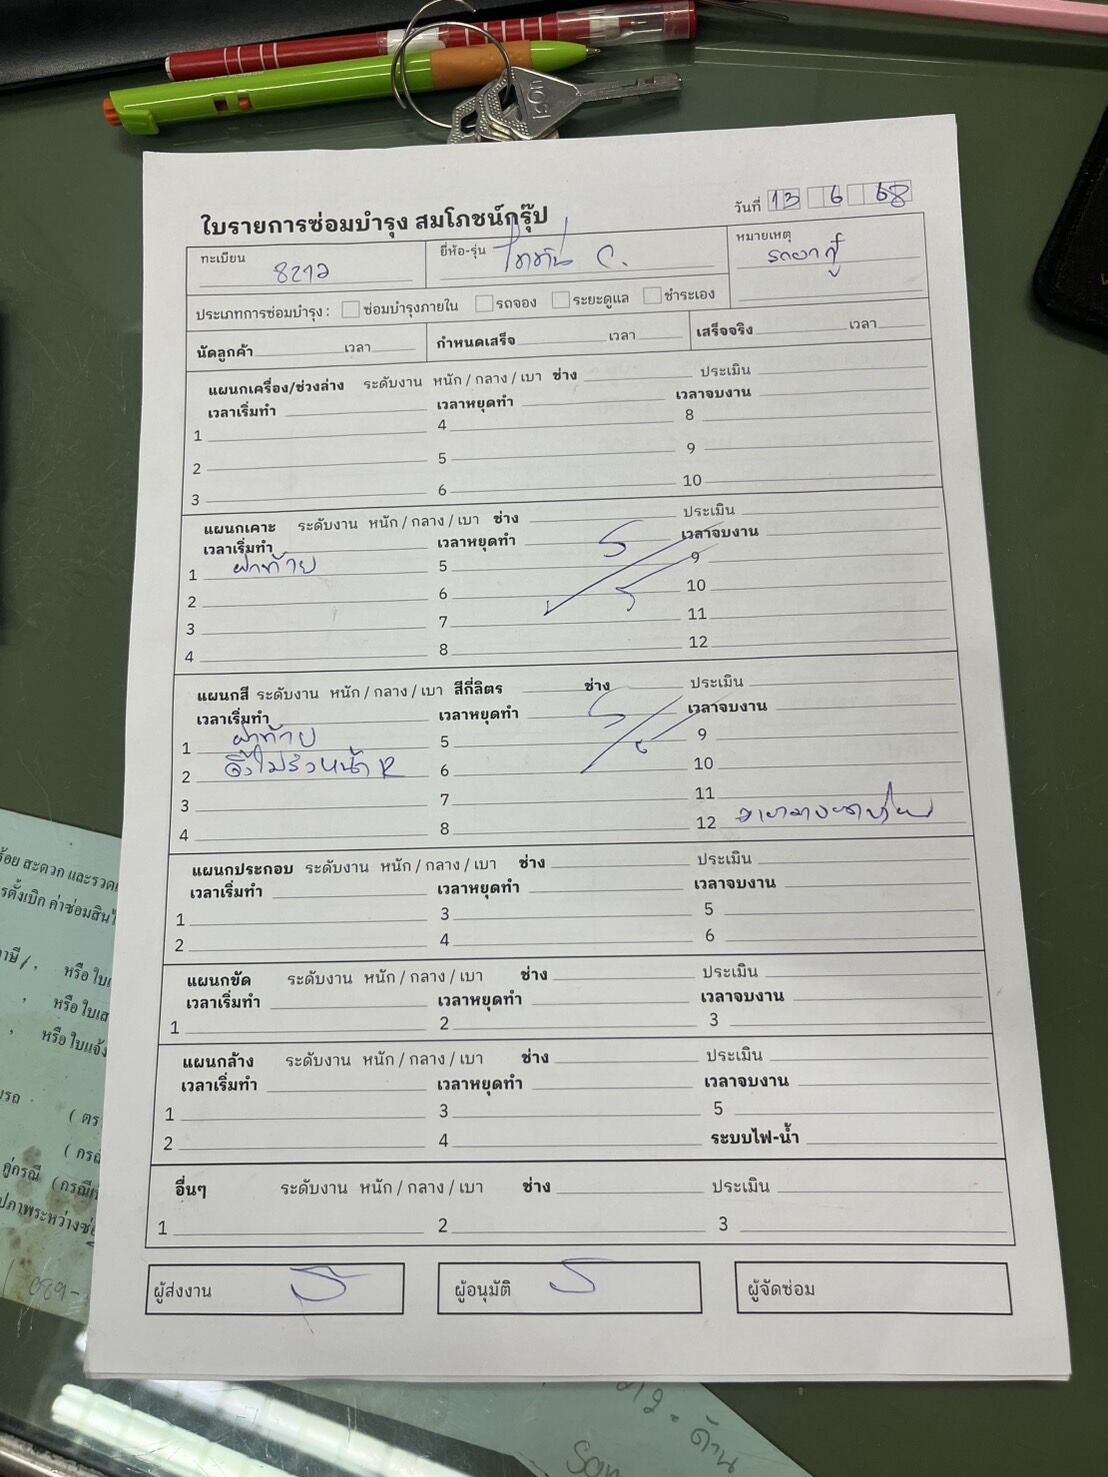 ใบรายการซ่อมบำรุง สมโภชน์กรุ๊ป
วันที่ 13 6 68
ทะเบียน 8212
ยี่ห้อ-รุ่น ไททัน C.
หมายเหตุ
ประเภทการซ่อมบำรุง : ซ่อมบำรุงภายใน รถจอง ระยะดูแล ชำระเอง
นัดลูกค้า เวลา กำหนดเสร็จ เวลา เสร็จจริง เวลา
แผนกเครื่อง/ช่วงล่าง ระดับงาน หนัก / กลาง / เบา ช่าง ประเมิน
เวลาเริ่มทำ เวลาหยุดทำ เวลาจบงาน
1 4 8
2 5 9
3 6 10
แผนกเคาะ ระดับงาน หนัก / กลาง / เบา ช่าง ประเมิน
เวลาเริ่มทำ เวลาหยุดทำ เวลาจบงาน
1 ฝาท้าย 5 9
2 6 10
3 7 11
4 8 12
แผนกสี ระดับงาน หนัก / กลาง / เบา สีกี่ลิตร ช่าง ประเมิน
เวลาเริ่มทำ เวลาหยุดทำ เวลาจบงาน
1 ฝาท้าย 5 9
2 หน้า R 6 10
3 7 11
4 8 12
แผนกประกอบ ระดับงาน หนัก / กลาง / เบา ช่าง ประเมิน
เวลาเริ่มทำ เวลาหยุดทำ เวลาจบงาน
1 3 5
2 4 6
แผนกขัด ระดับงาน หนัก / กลาง / เบา ช่าง ประเมิน
เวลาเริ่มทำ เวลาหยุดทำ เวลาจบงาน
1 2 3
แผนกล้าง ระดับงาน หนัก / กลาง / เบา ช่าง ประเมิน
เวลาเริ่มทำ เวลาหยุดทำ เวลาจบงาน
1 3 5
2 4 ระบบไฟ-น้ำ
อื่นๆ ระดับงาน หนัก / กลาง / เบา ช่าง ประเมิน
1 2 3
ผู้ส่งงาน ผู้อนุมัติ ผู้จัดซ่อม